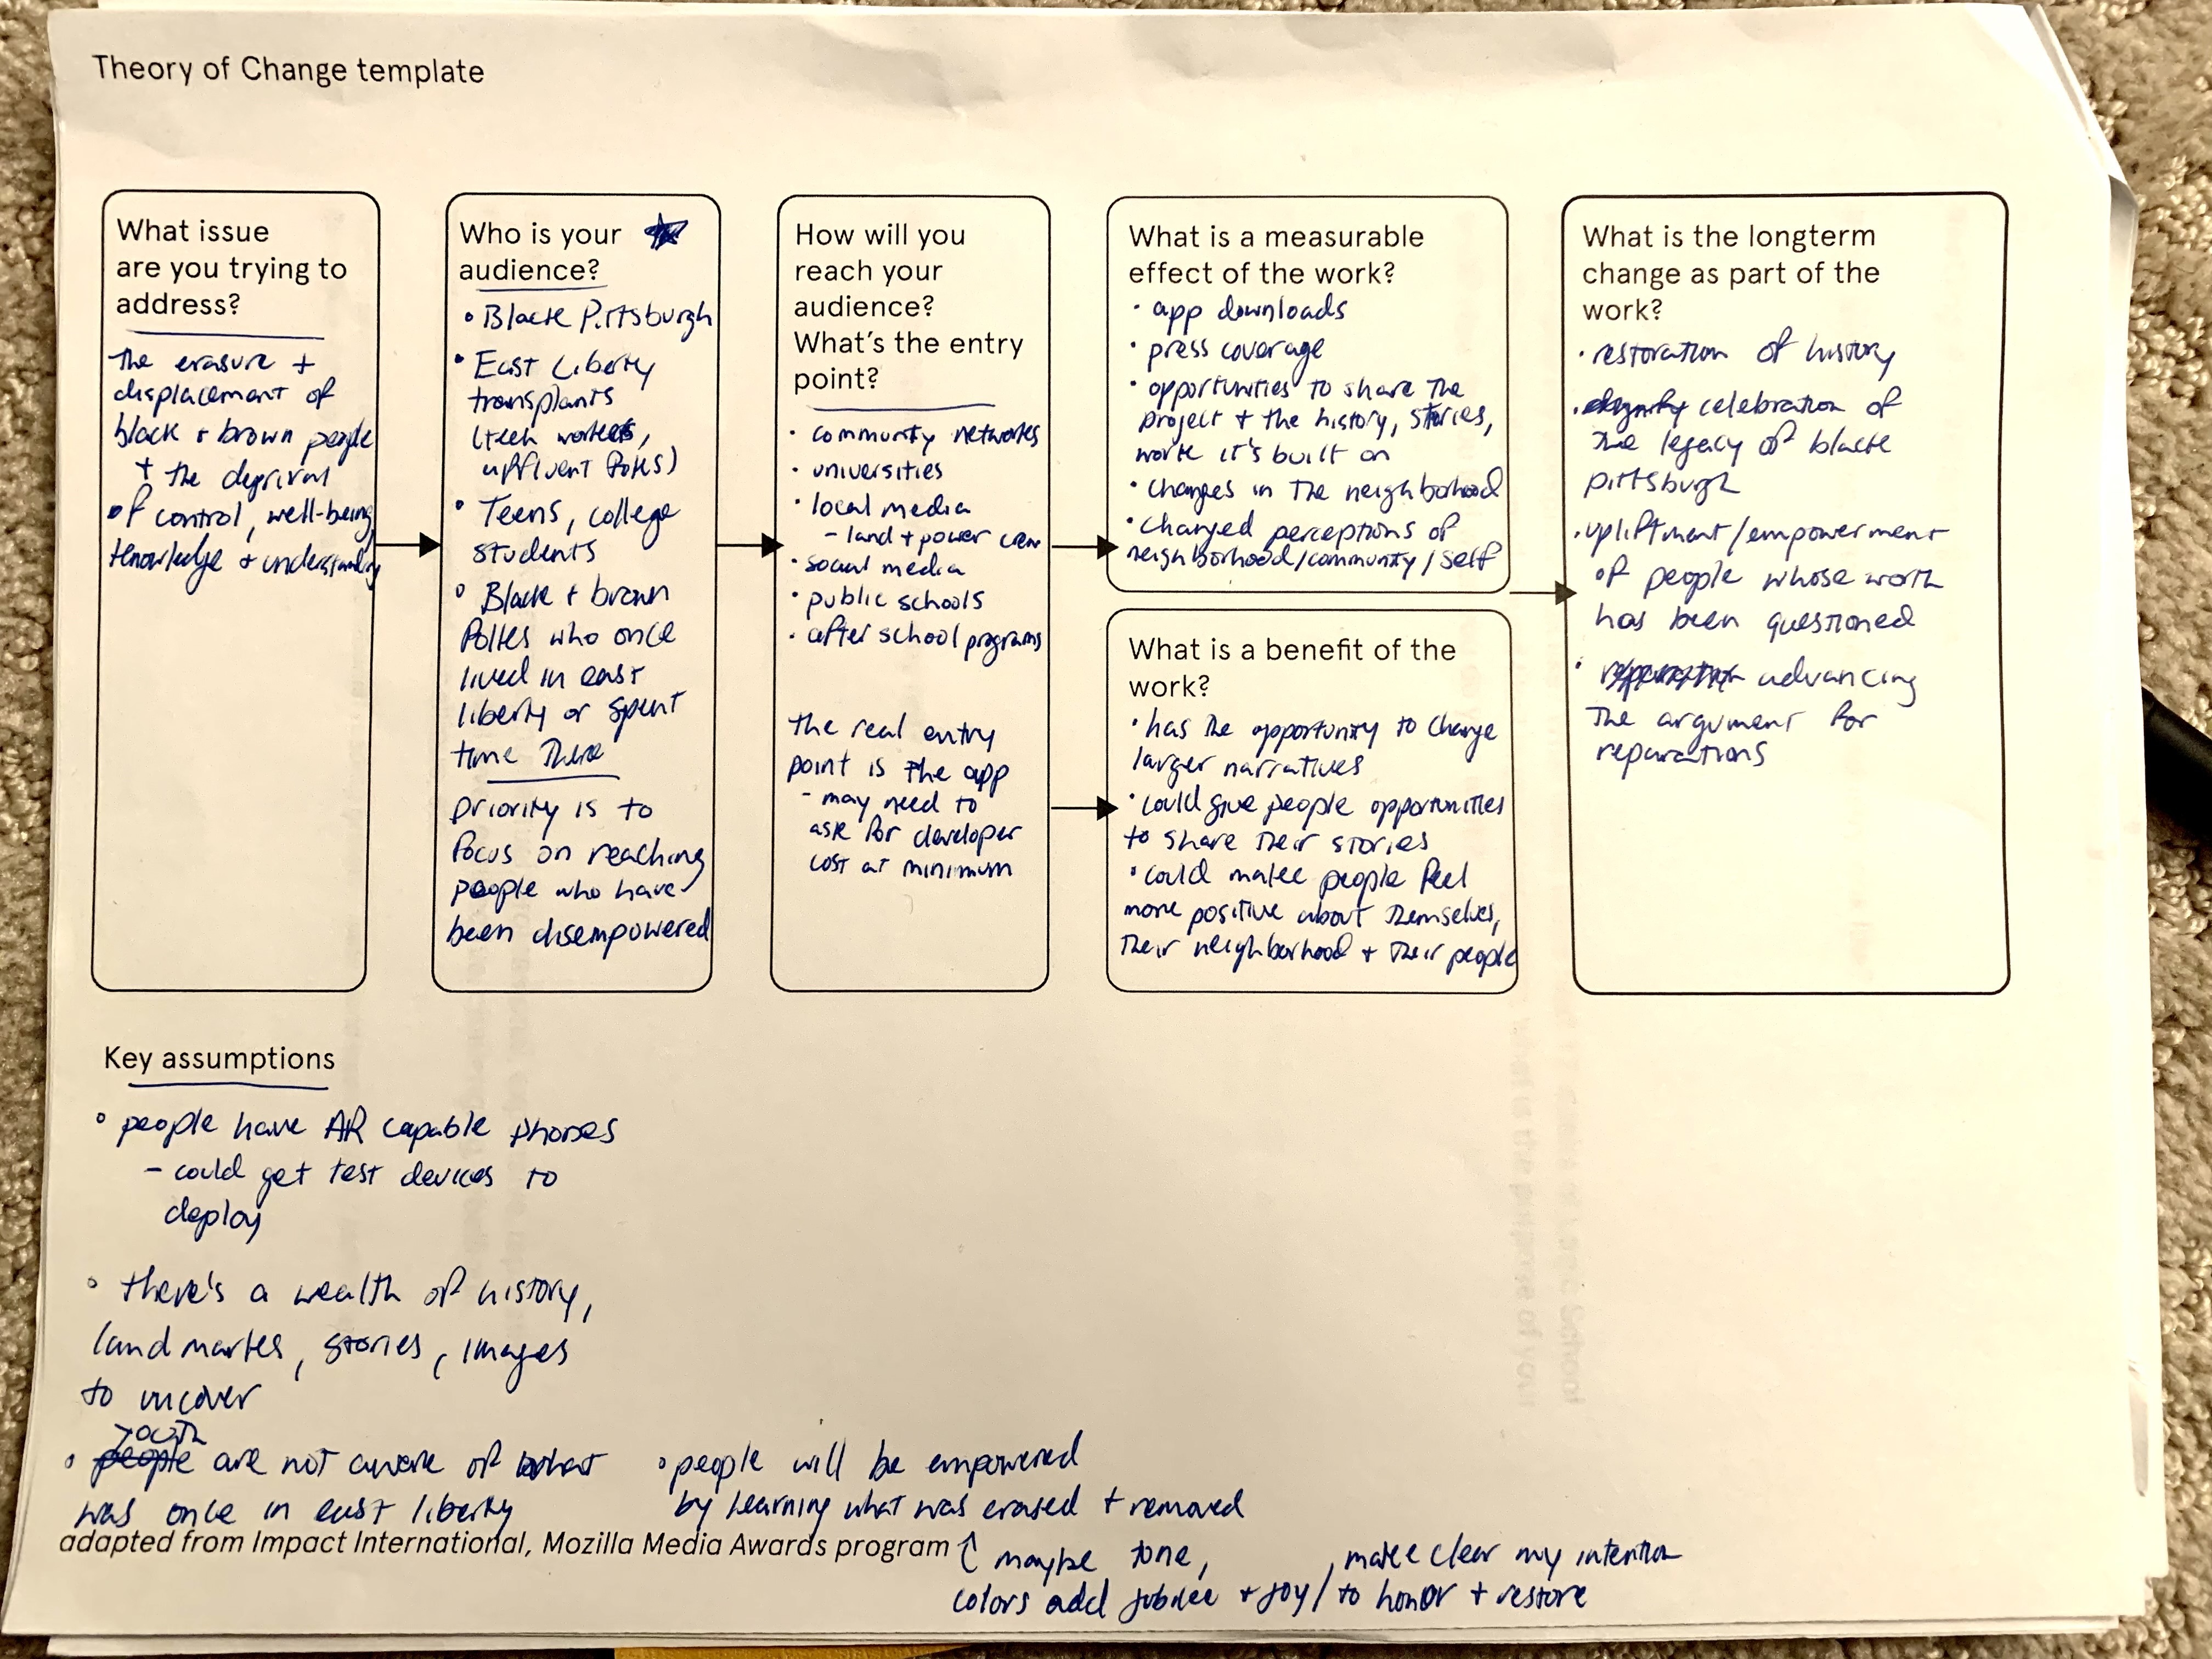 Theory of Change template
What issue
are you trying to
address?
The erasure +
displacement of
black + brown people
+ the deprival
of control, well-being,
knowledge + understanding
Who is your
audience?
• Black Pittsburgh
• East Liberty
transplants
(tech workers,
affluent folks)
• Teens, college
students
• Black + brown
folks who once
lived in east
liberty or spent
time there
priority is to
focus on reaching
people who have
been disempowered
How will you
reach your
audience?
What's the entry
point?
• community networks
• universities
• local media
- land + power crew
• social media
• public schools
• after school programs
the real entry
point is the app
- may need to
ask for developer
cost at minimum
What is a measurable
effect of the work?
• app downloads
• press coverage
• opportunities to share the
project + the history, stories,
work it's built on
• changes in the neighborhood
• changed perceptions of
neighborhood/community/self
What is a benefit of the
work?
• has the opportunity to change
larger narratives
• could give people opportunities
to share their stories
• could make people feel
more positive about themselves,
their neighborhood + their people
What is the longterm
change as part of the
work?
• restoration of history
• celebration of
the legacy of black
pittsburgh
• upliftment/empowerment
of people whose worth
has been questioned
• advancing
the argument for
reparations
Key assumptions
• people have AR capable phones
- could get test devices to
deploy
• there's a wealth of history,
landmarks, stories, images
to uncover
youth
• people are not aware of what
was once in east liberty
• people will be empowered
by learning what was erased + removed
adapted from Impact International, Mozilla Media Awards program
maybe tone,
colors add jubilee + joy /
, make clear my intention
to honor + restore